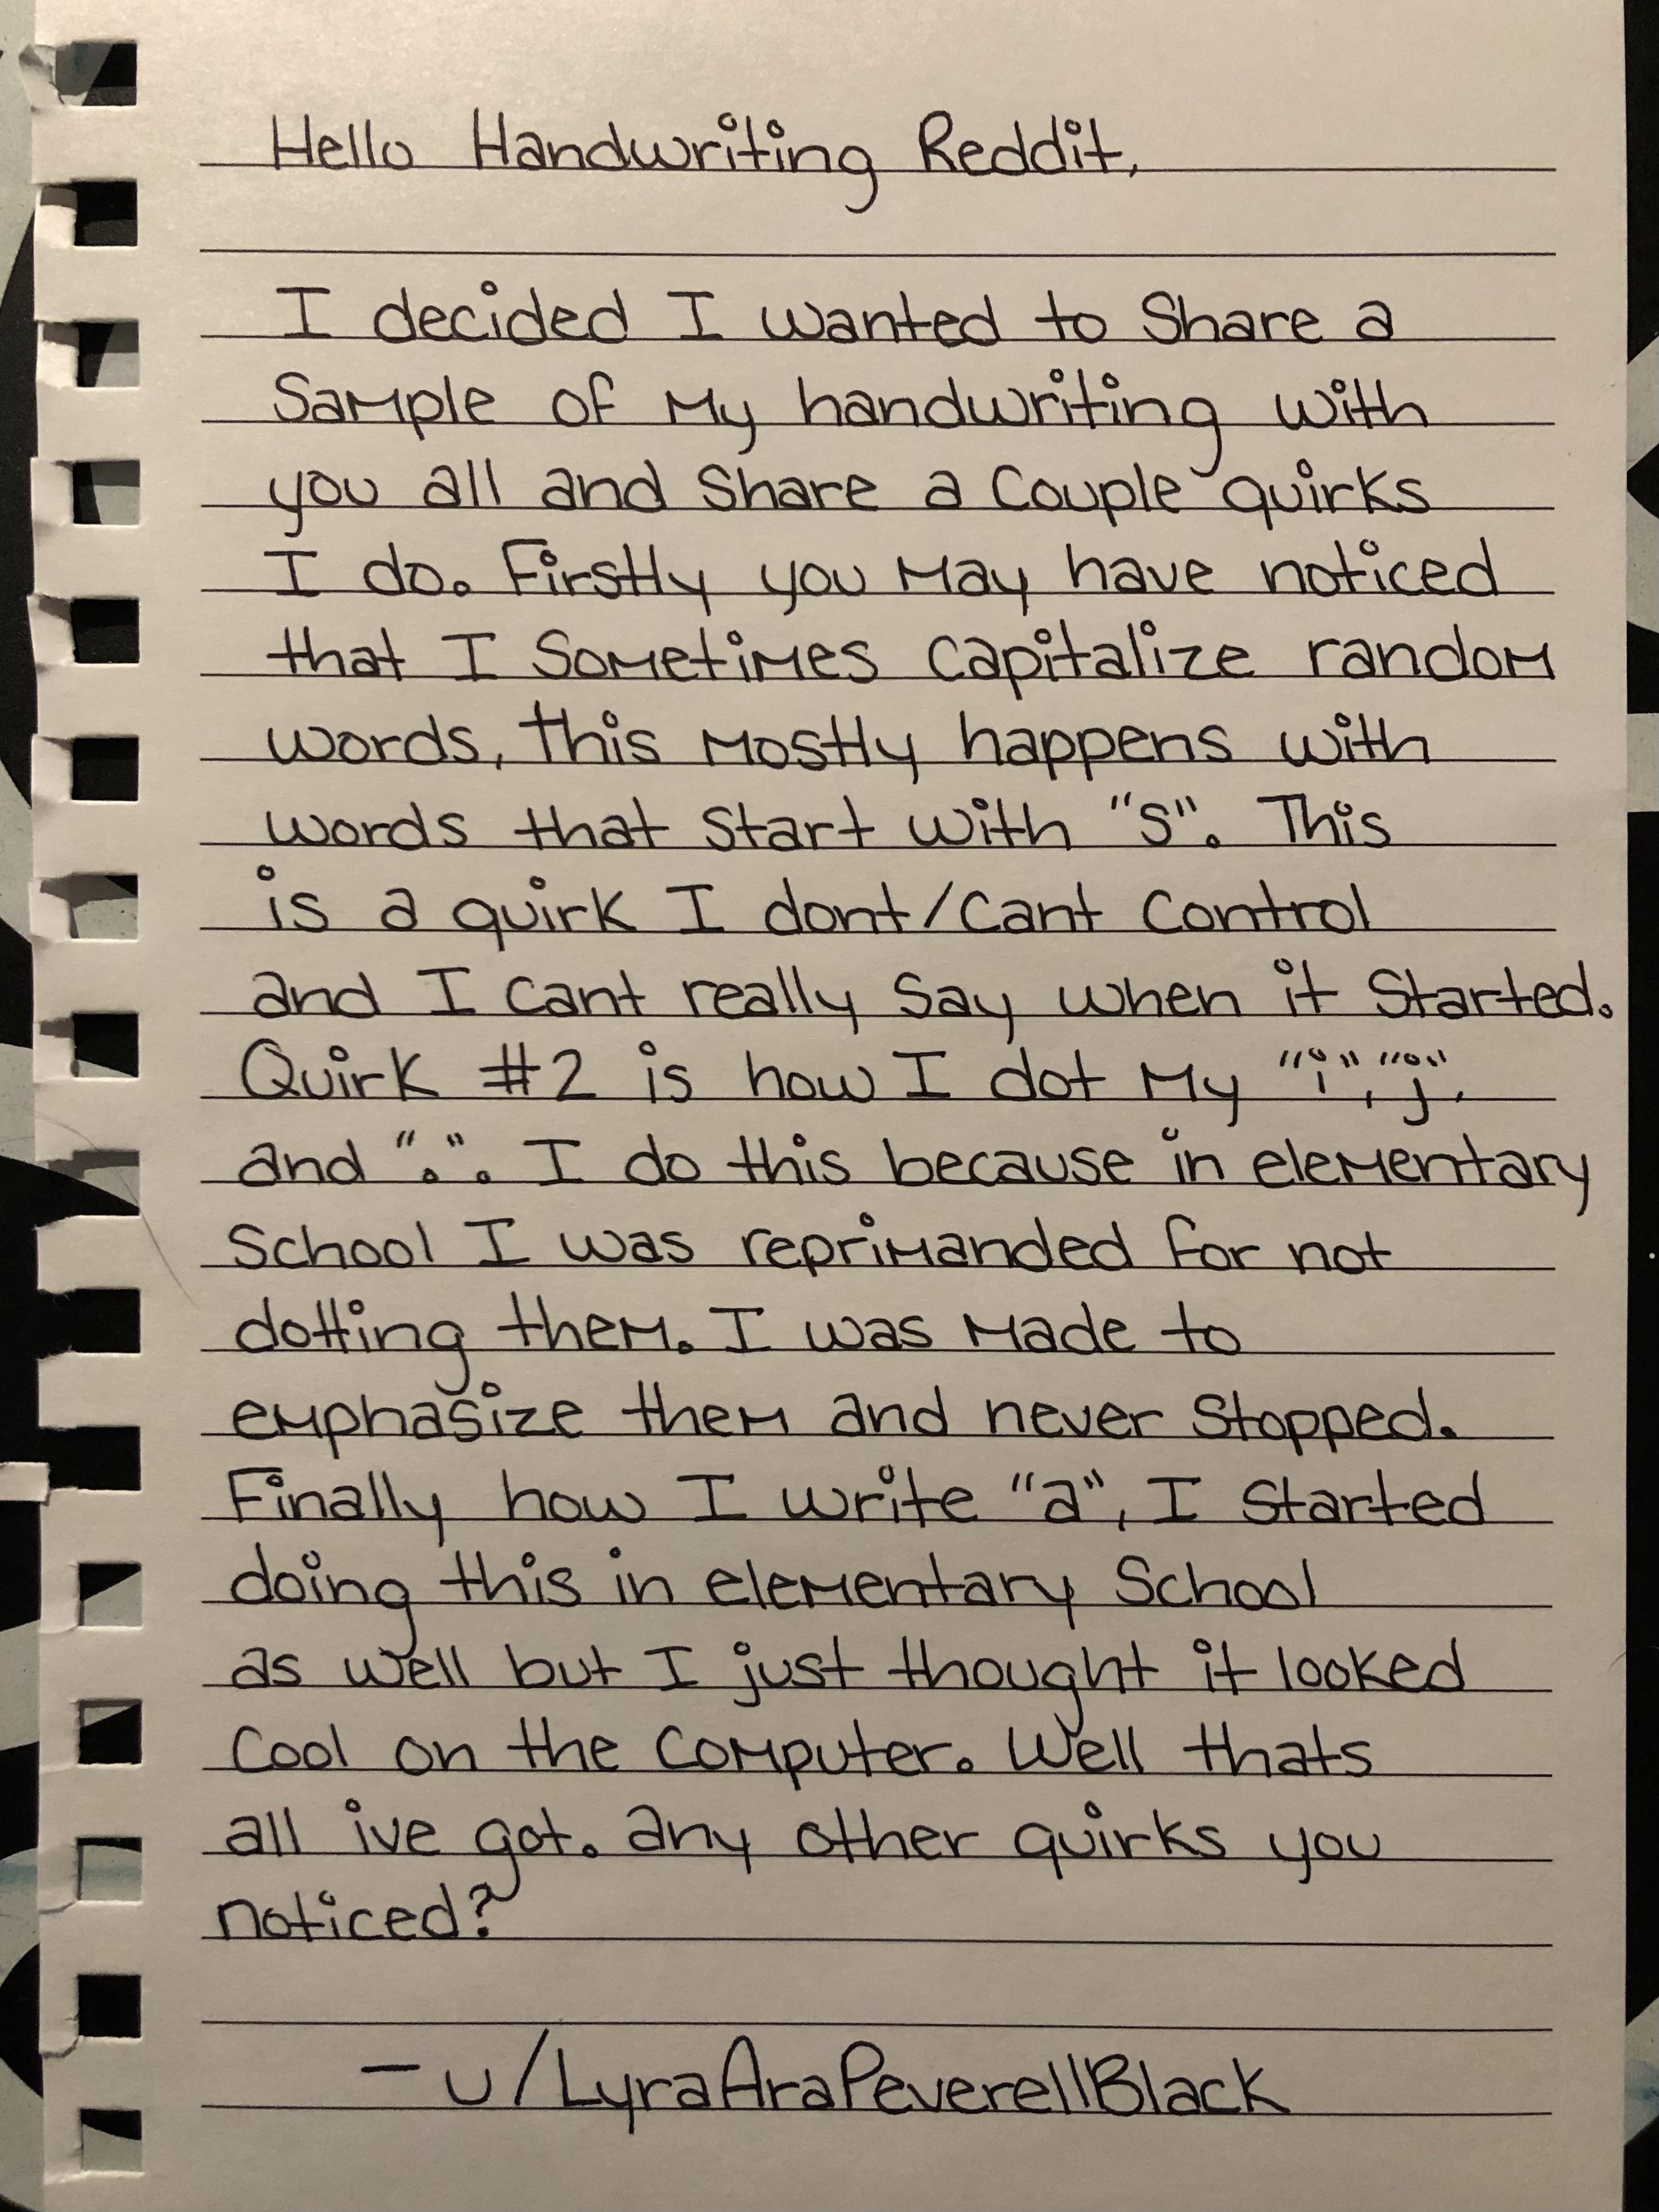 Hello Handwriting Reddit,
I decided I wanted to Share a
Sample of My handwriting with
you all and Share a Couple quirks
I do. Firstly you May have noticed
that I Sometimes Capitalize random
words, this Mostly happens with
words that Start with "S". This
is a quirk I dont/Cant Control
and I Cant really Say when it Started.
Quirk #2 is how I dot My "i", "j",
and ".". I do this because in elementary
School I was reprimanded for not
dotting them. I was Made to
emphasize them and never Stopped.
Finally how I write "a", I Started
doing this in elementary School
as well but I just thought it looked
Cool on the Computer. Well thats
all ive got. any other quirks you
noticed?
- u/LyraAraPeverellBlack